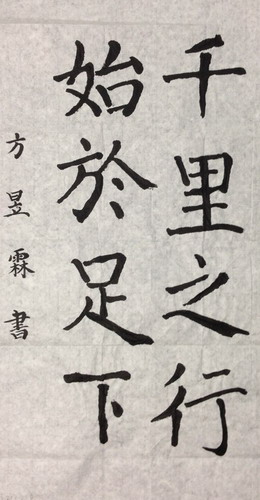 千里之行
始於足下
方昱霖書